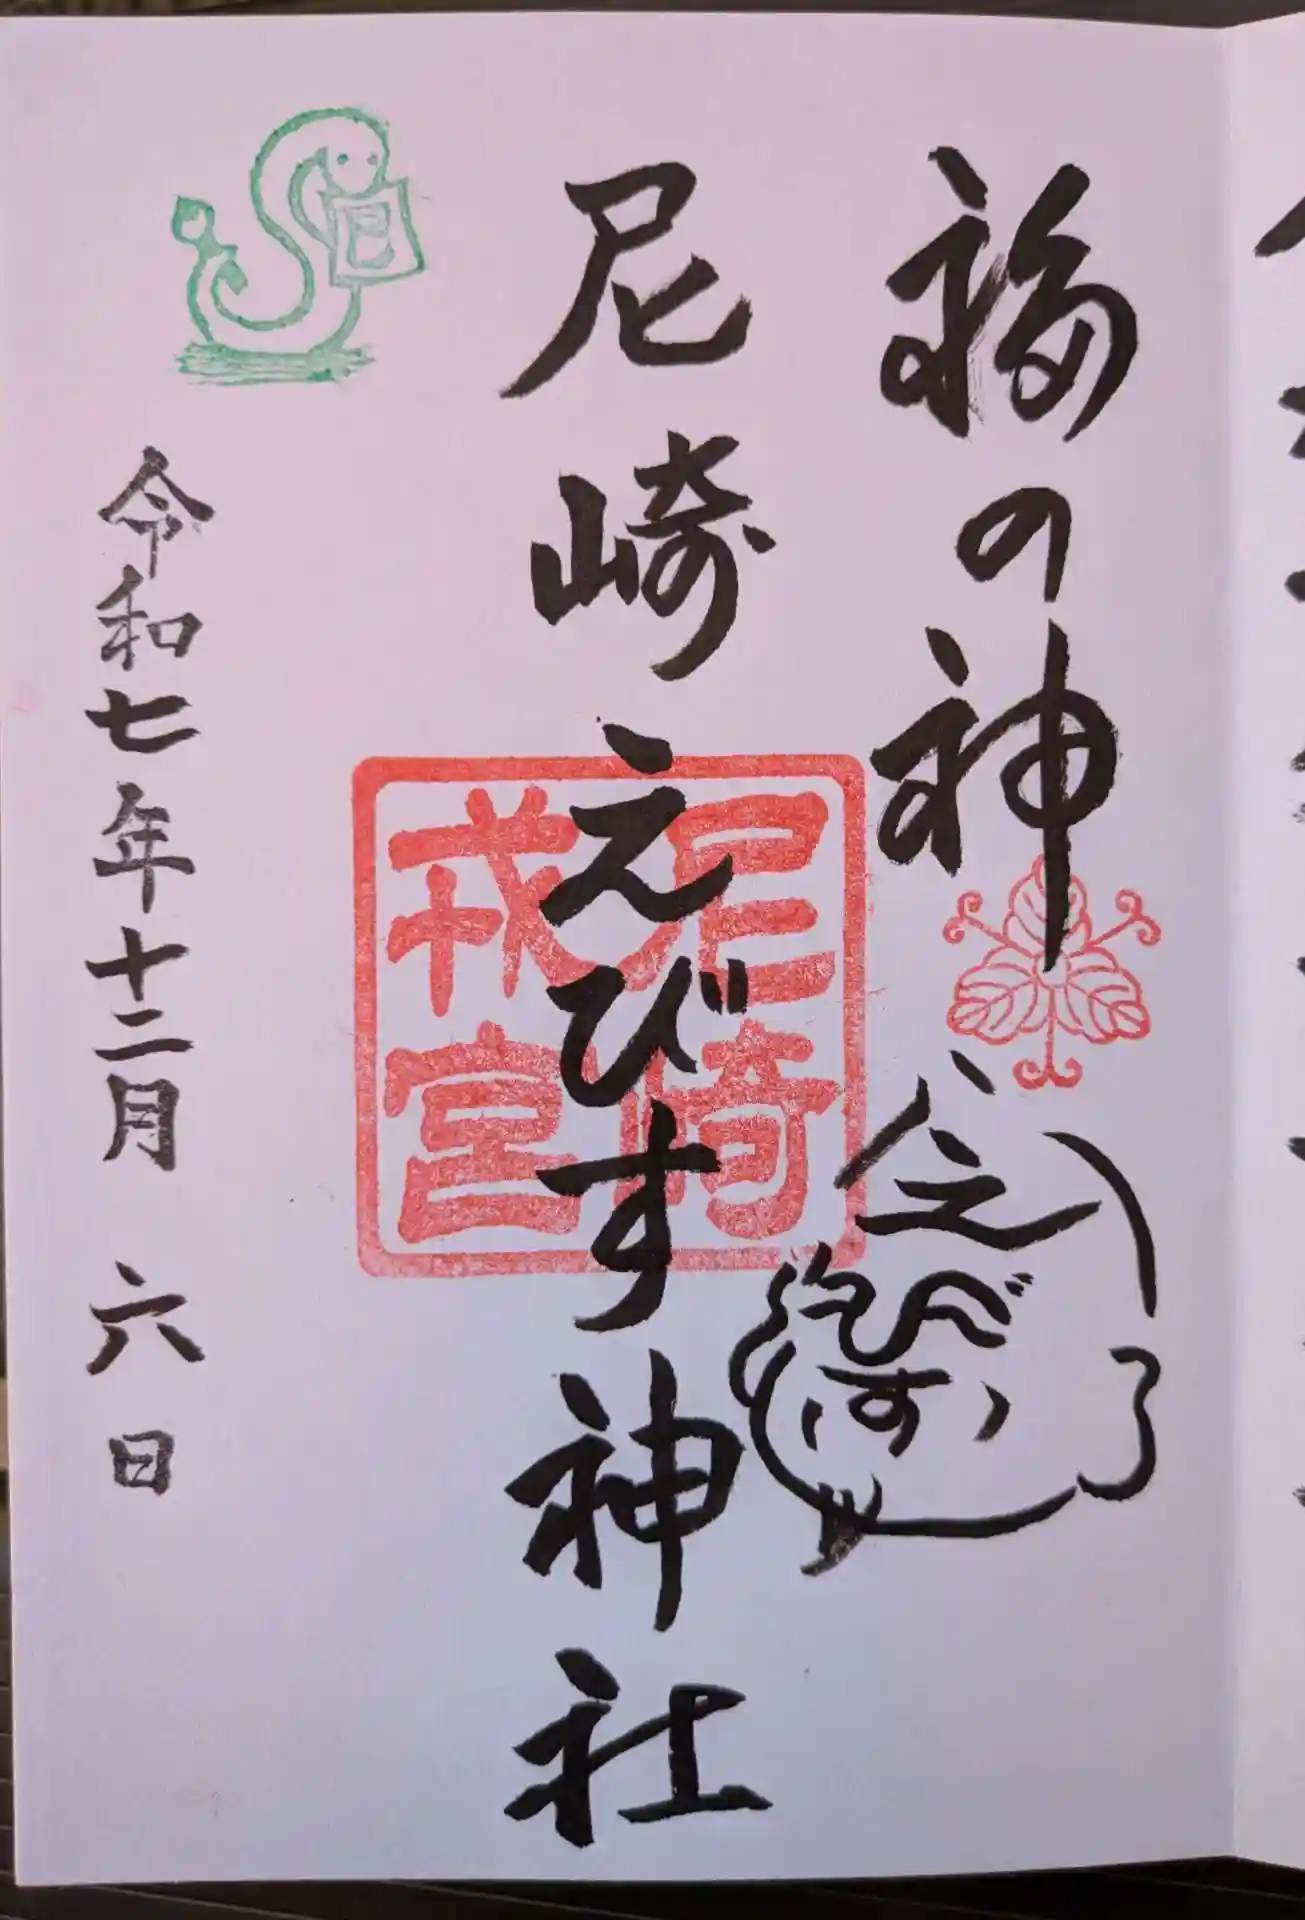 福の神
えびす
尼崎えびす神社
尼崎
戎宮
巳
令和七年十二月六日